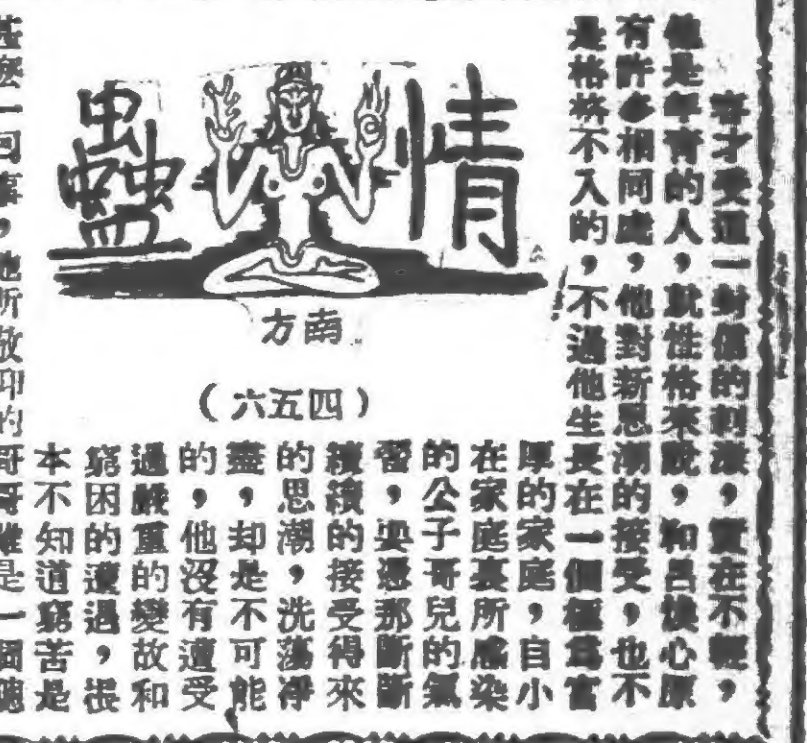 情蠱
南方
（四五六）
才受這一封信的刺激，實在不輕，
他是年青的人，就性格來說，和呂心原
有許多相同處，他對新思潮的接受，也不
是格格不入的，不過他生長在一個極為富
厚的家庭，自小
在家庭裏所感染
的公子哥兒的氣
習，要憑那斷斷
續續的接受得來
的思潮，洗蕩淨
盡，却是不可能
的，他沒有遭受
過嚴重的變故和
窮困的遭遇，根
本不知道窮苦是
甚麼一回事，他所敬仰的哥哥雖是一個聰